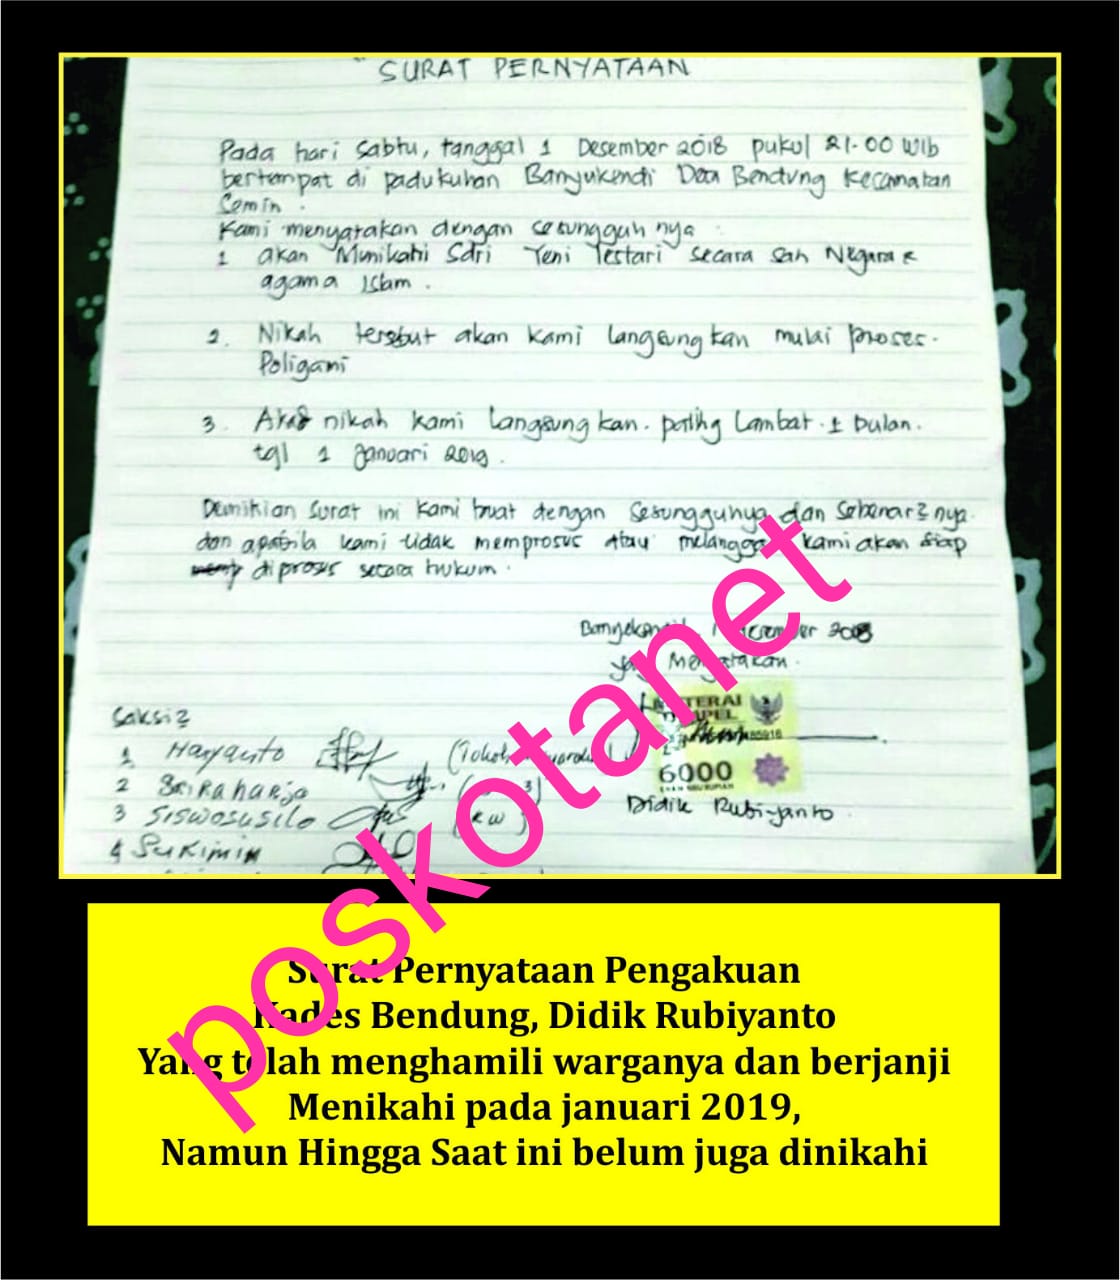 " SURAT PERNYATAAN
Pada hari Sabtu, tanggal 1 Desember 2018 pukul 21.00 WIB
bertempat di padukuhan Banyukendi Desa Bendung Kecamatan
Semin.
Kami menyatakan dengan sesungguh nya
1 akan Menikahi Sdri Yeni Lestari secara sah Negara &
agama Islam.
2. Nikah tersebut akan kami langsungkan mulai proses.
Poligami
3. Akad nikah kami langsungkan. paling lambat. 1 bulan.
tgl 1 januari 2019.
Demikian surat ini kami buat dengan sesunggunya dan sebenar2 nya.
dan apabila kami tidak memproses atau kami akan siap
diproses secara hukum.
2018
yang Menyatakan.
METERAI
TEMPEL
6000
ENAM RIBU RUPIAH
Didik Rubi-yanto.
Saksi2
1 Haryanto
2 Sri Raharjo
3 Siswosusilo (RW)
4 Sukimin
poskotanet
Surat Pernyataan Pengakuan
Kades Bendung, Didik Rubiyanto
Yang telah menghamili warganya dan berjanji
Menikahi pada januari 2019,
Namun Hingga Saat ini belum juga dinikahi